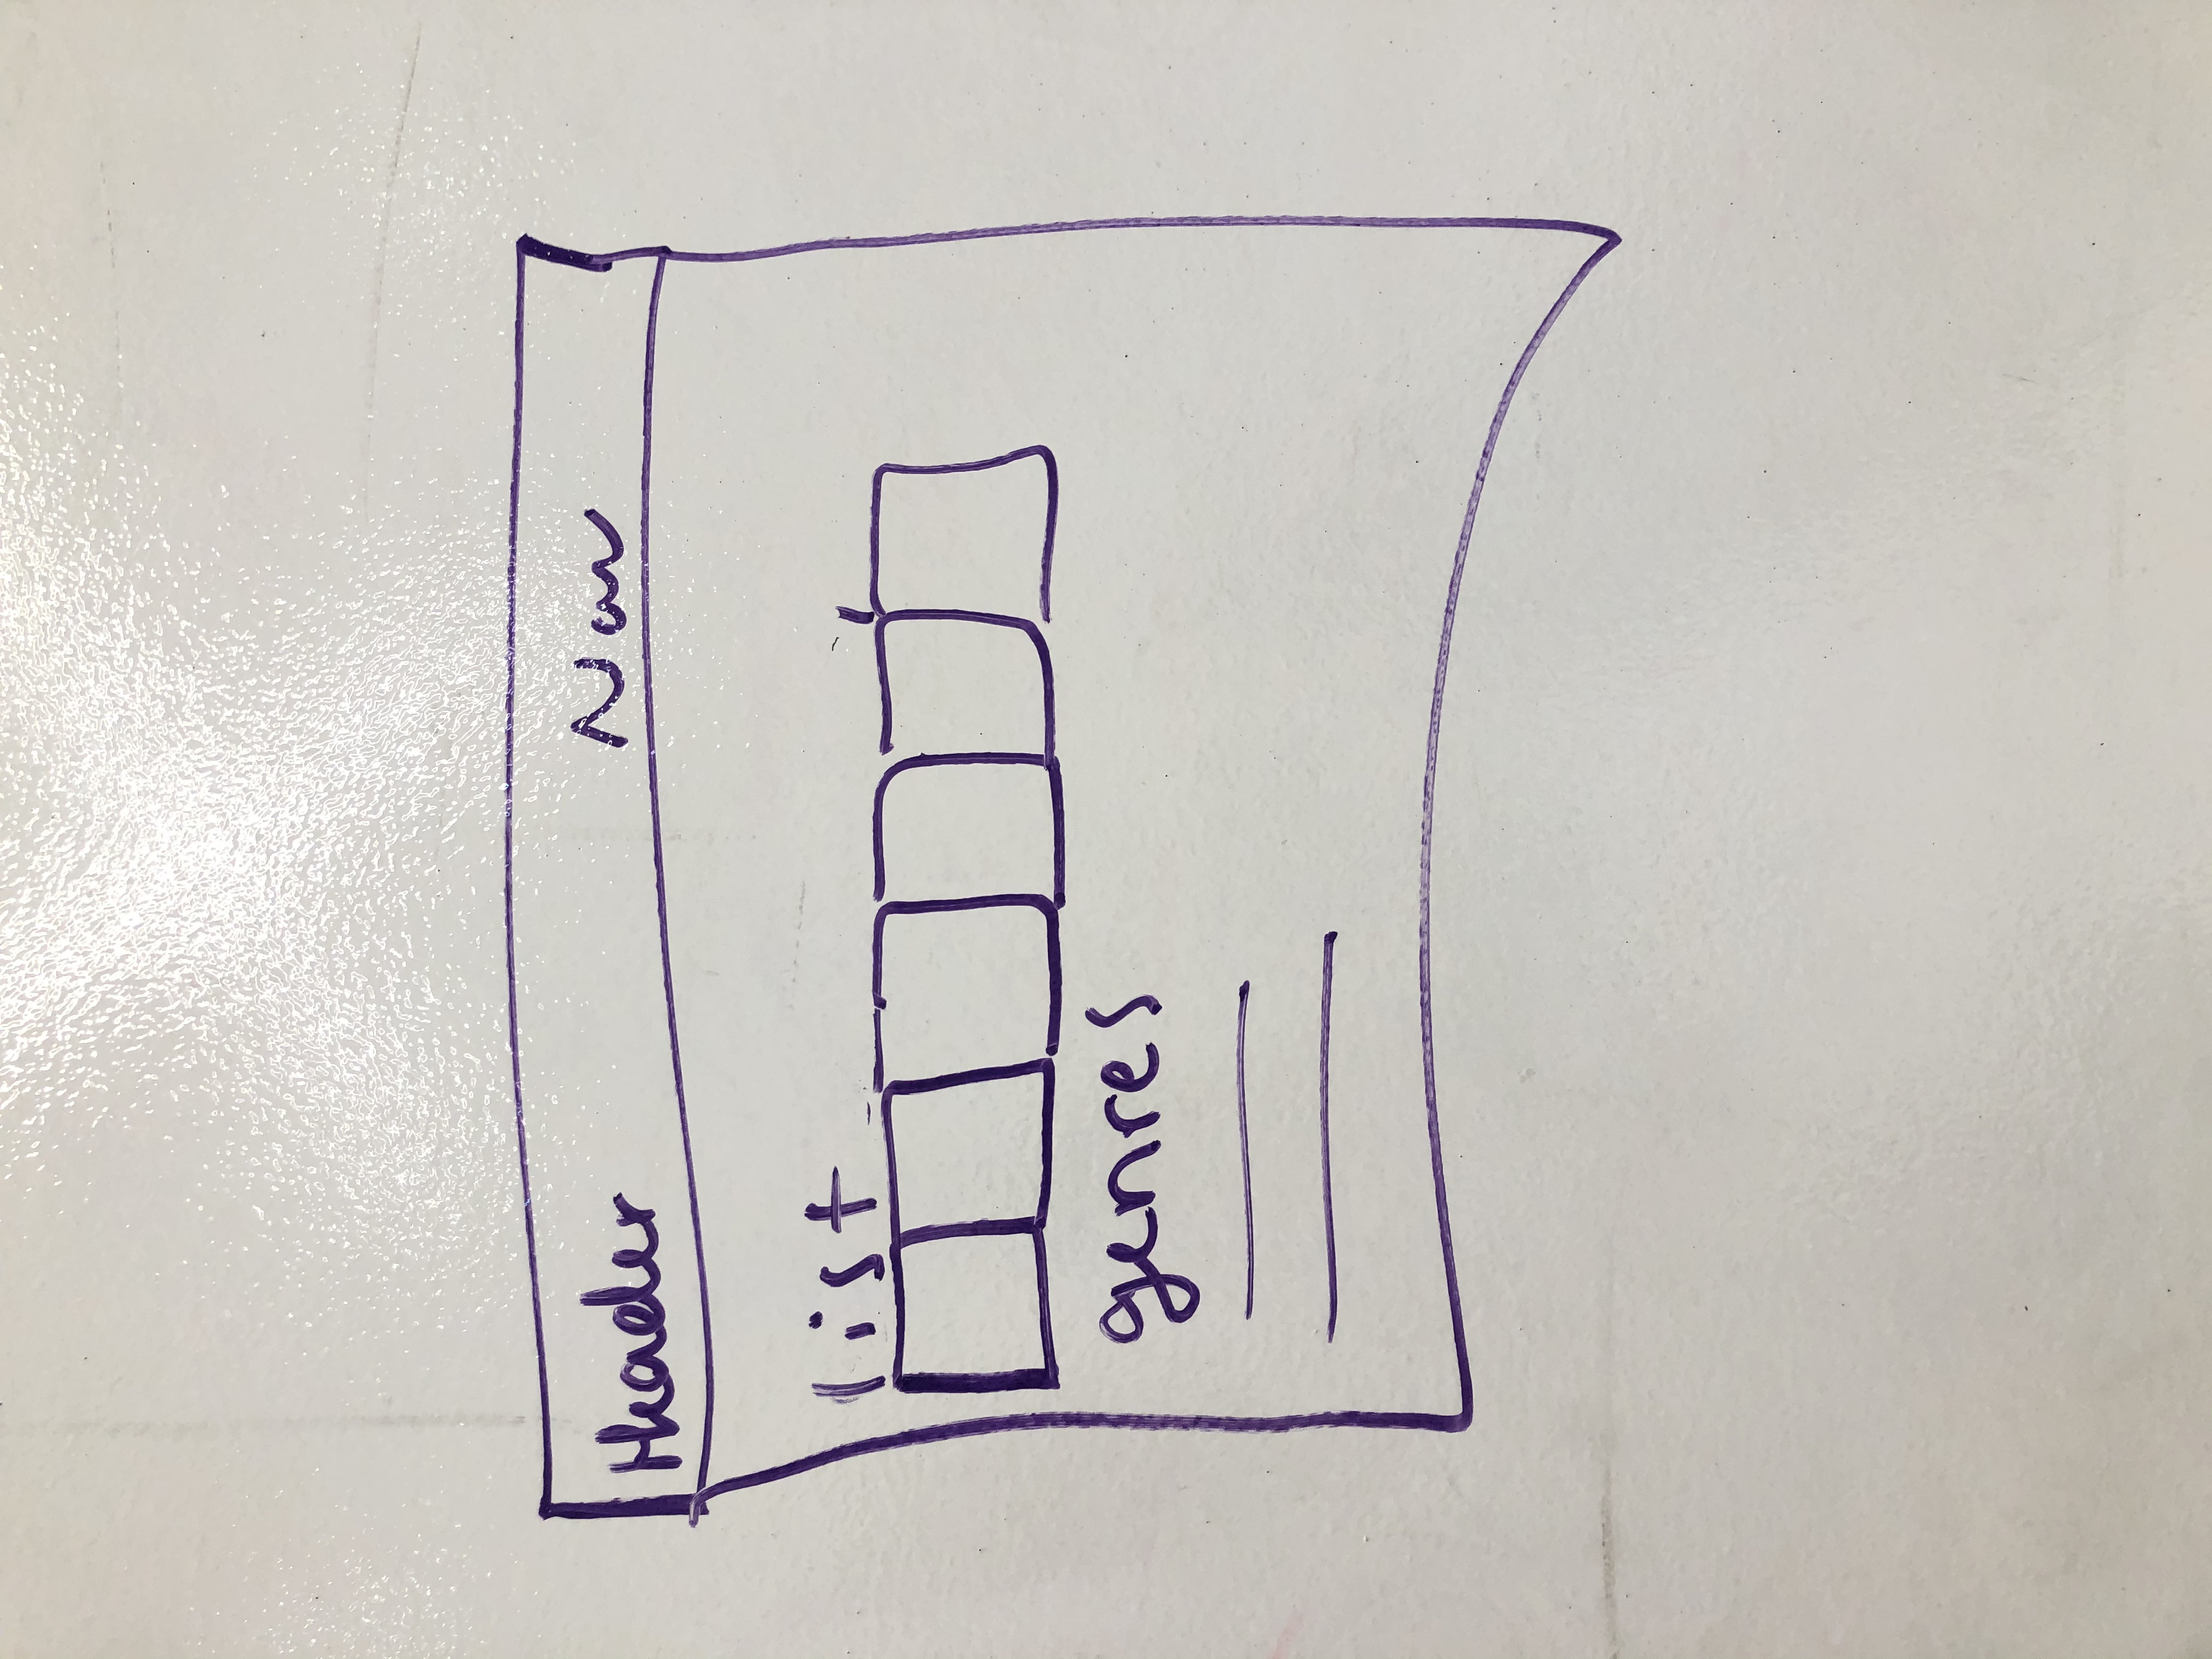 Header Nav
list
genres